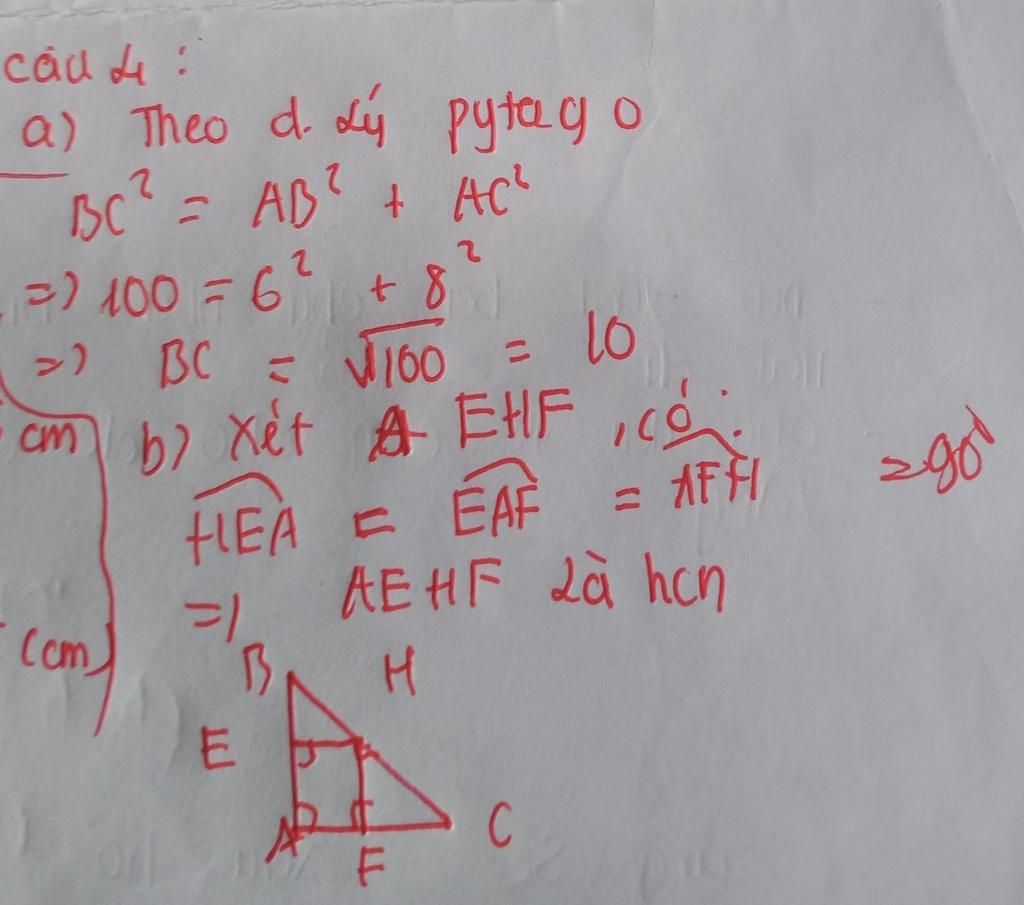 câu 4:
a) Theo d. Lý pytago
BC² = AB² + AC²
=> 100 = 6² + 8²
=> BC = √100 = 10
cm
b) Xét A EHF, có:
HEA = EAF = AFH = 90°
=> AEHF là hcn
(cm)
B H
E
A F C